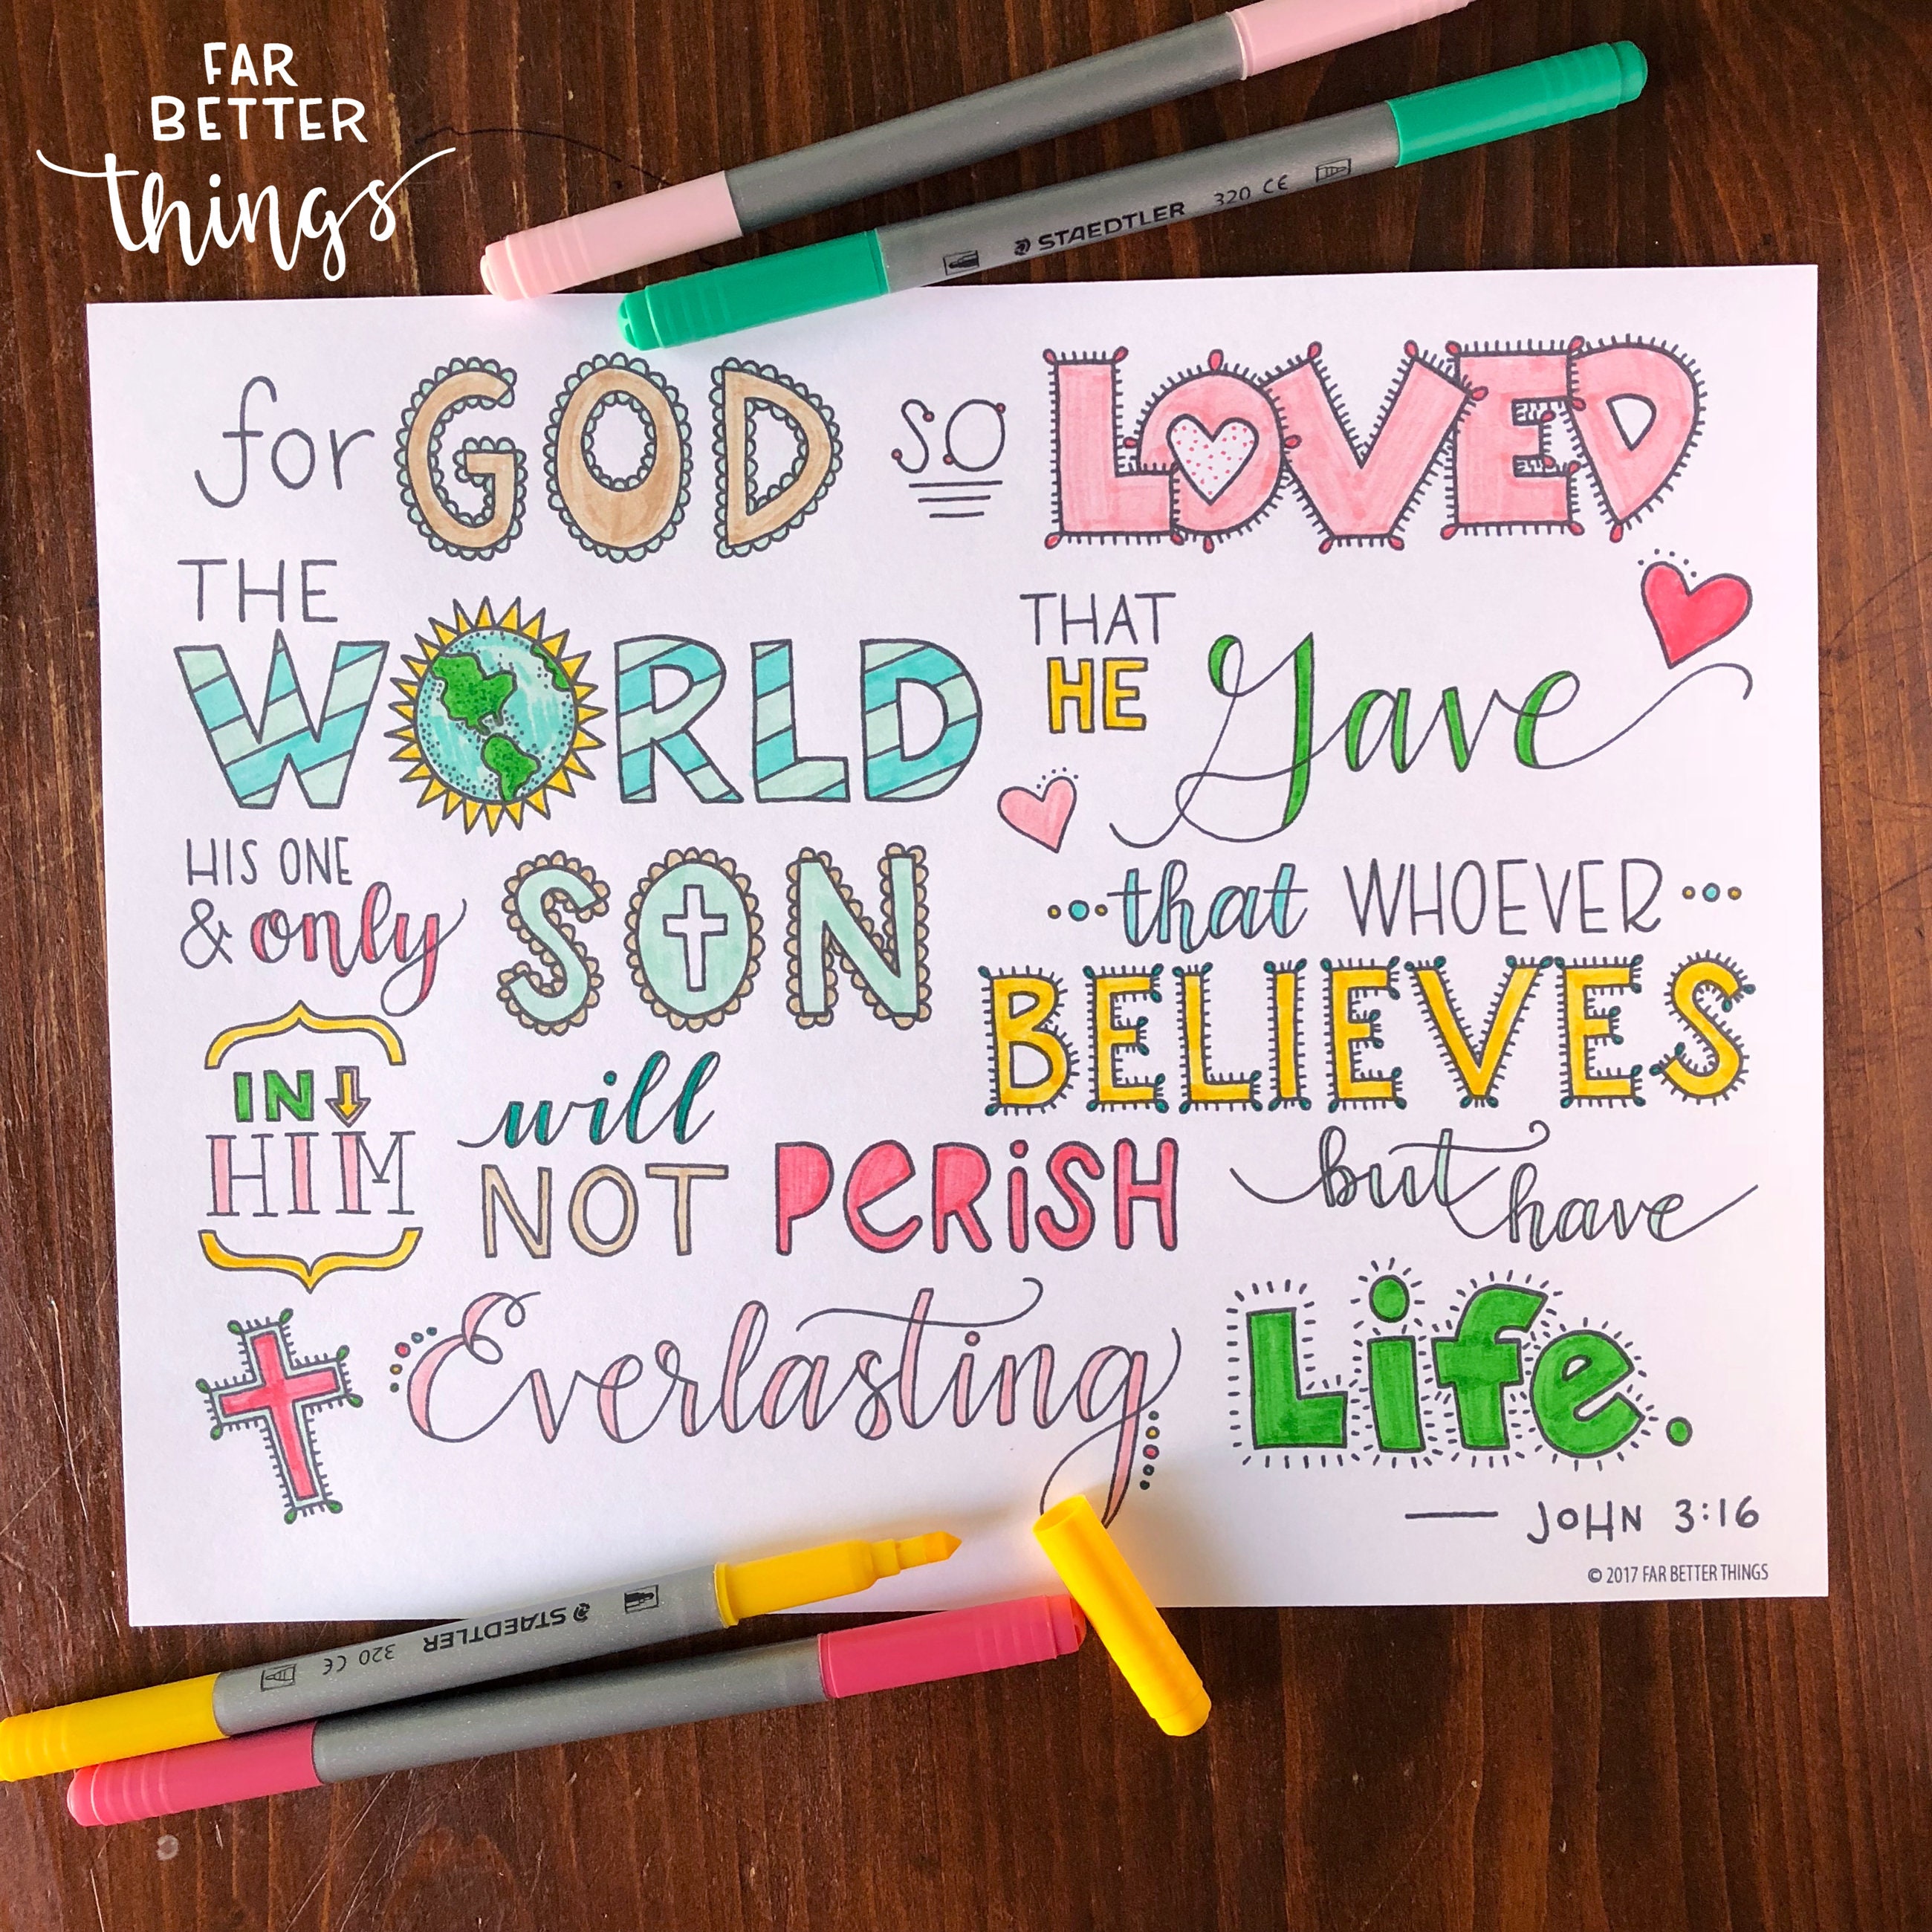 FAR
BETTER
things
STAEDTLER 320 CE
for GOD so LOVED
THE
WORLD
THAT
HE gave
HIS ONE
& only SON
that WHOEVER
BELIEVES
IN
HIM
will
NOT PERiSH
but have
Everlasting Life.
— JOHN 3:16
© 2017 FAR BETTER THINGS
STAEDTLER 320 CE